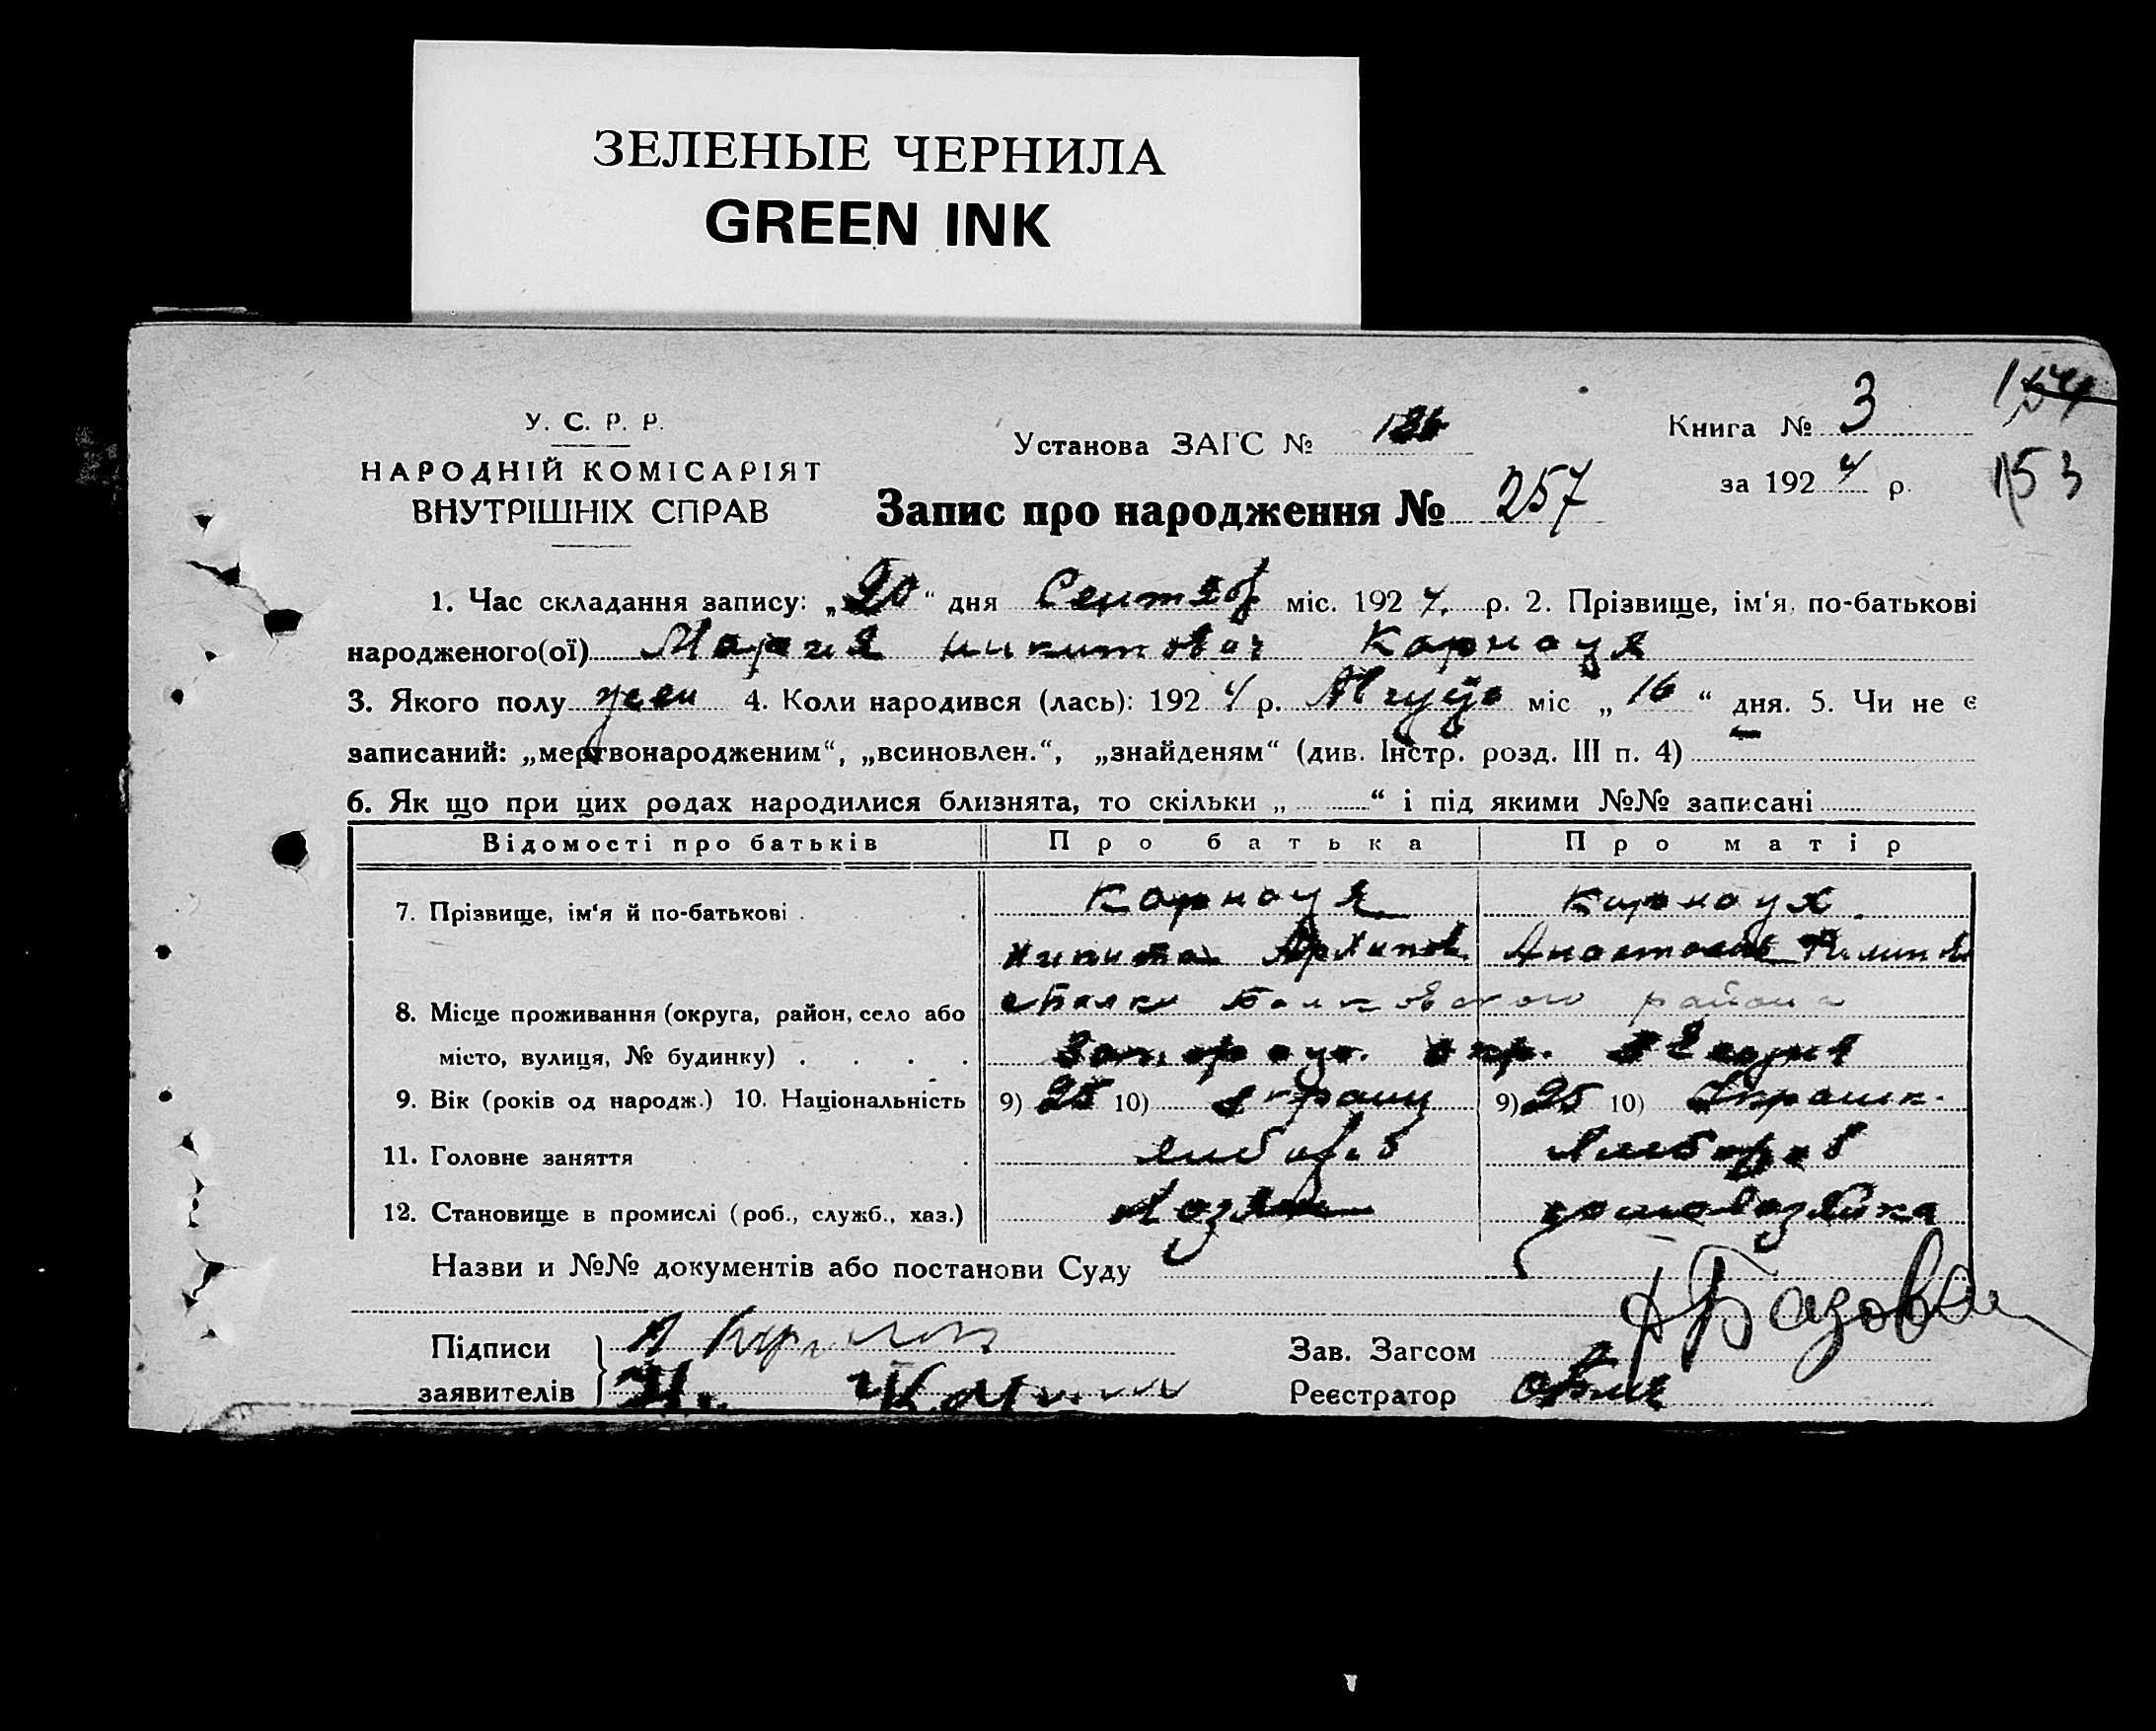 ЗЕЛЕНЫЕ ЧЕРНИЛА
GREEN INK
У. С. Р. Р.
НАРОДНІЙ КОМІСАРІЯТ
ВНУТРІШНІХ СПРАВ
Установа ЗАГС №
Книга № 3
за 1924 р.
153
Запис про народження № 257
1. Час складання запису: „20“ дня Сентяб міс. 1924 р. 2. Прізвище, ім‘я, по-батькові
народженого(ої) Мария Никитовна Карнаух
3. Якого полу жен 4. Коли народився (лась): 1924 р. міс „16“ дня. 5. Чи не є
записаний: „мертвонародженим“, „всиновлен.“, „знайденям“ (див. Інстр. розд. III п. 4)
6. Як що при цих родах народилися близнята, то скільки „ “ і під якими №№ записані
Відомості про батьків Про батька Про матір
7. Прізвище, ім‘я й по-батькові Карнаух Карнаух
Никита Архипов
8. Місце проживання (округа, район, село або Балковского района
місто, вулиця, № будинку)
9. Вік (років од народж.) 10. Національність 9) 25 10) 9) 25 10)
11. Головне заняття хлебороб хлебороб
12. Становище в промислі (роб., служб., хаз.) хозяин домохозяйка
Назви и №№ документів або постанови Суду
Підписи
заявителів
Зав. Загсом
Реєстратор